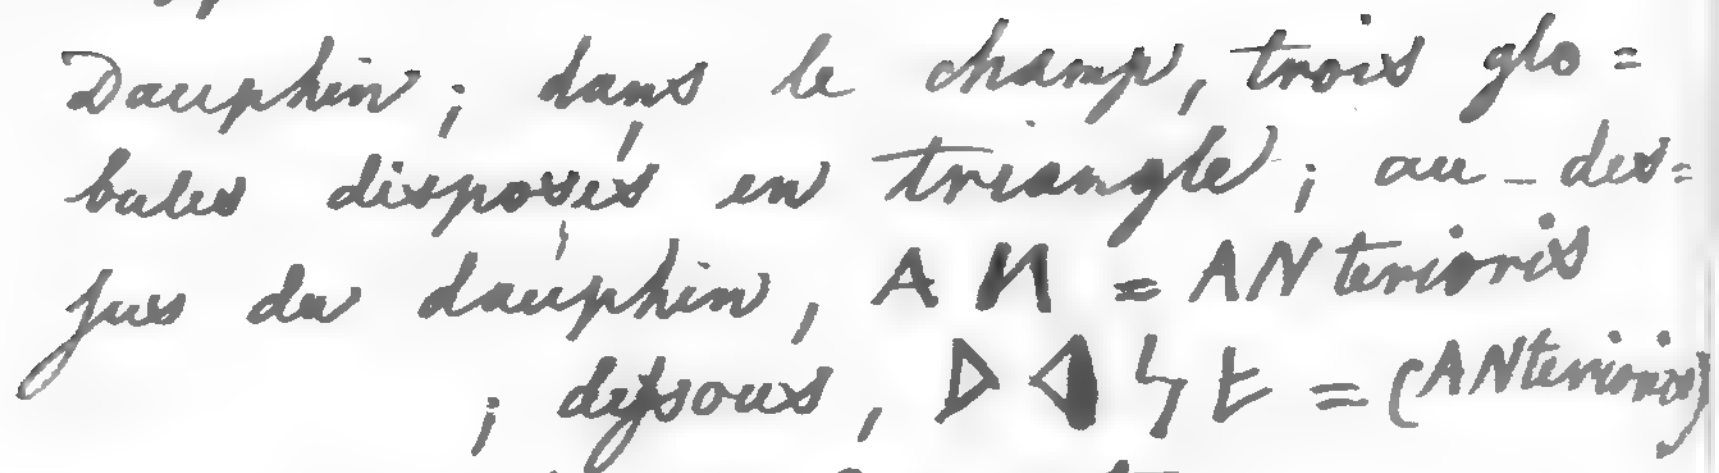 Dauphin ; dans le champ, trois glo=
bules disposés en triangle ; au-des=
sus du dauphin, A И = ANterioris
; dessous, (ANterioris)